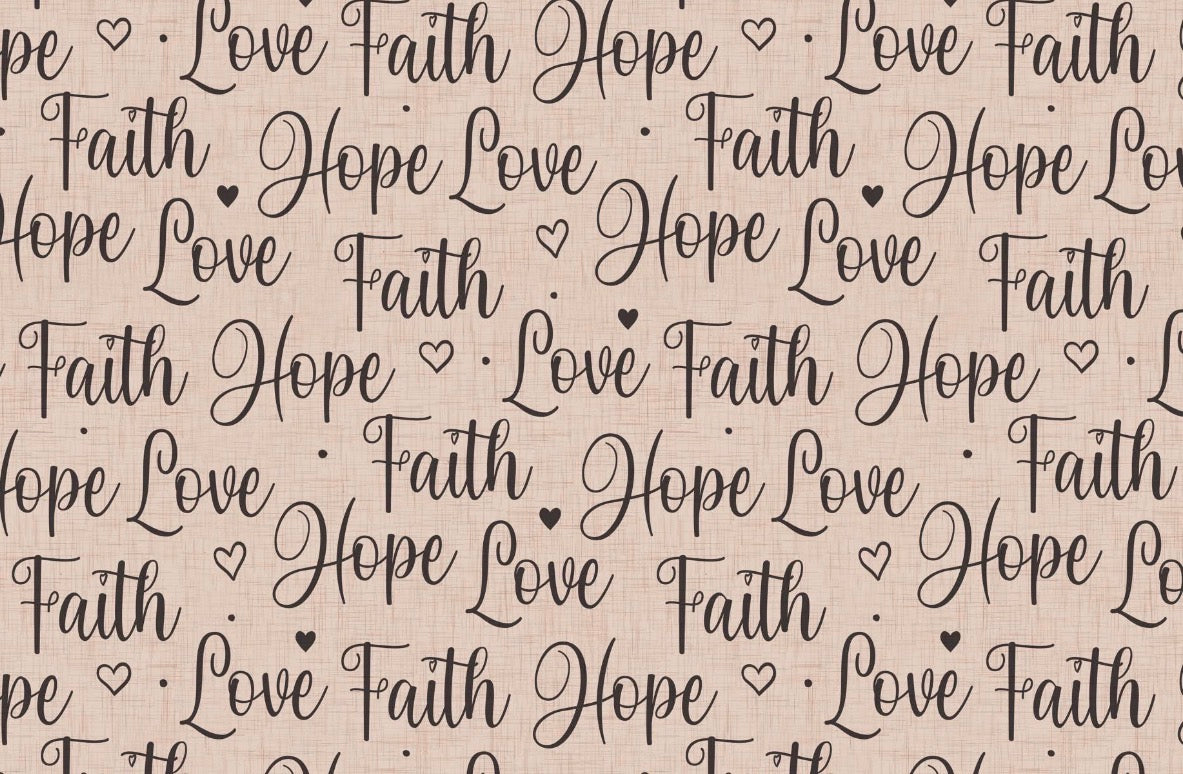 pe Love Faith Hope Love Faith
Faith Hope Love Faith Hope Lov
Hope Love Faith Hope Love Faith
Faith Hope Love Faith Hope L
ope Love Faith Hope Love Faith
Faith Hope Love Faith Hope Lo
pe Love Faith Hope Love Faith
Faith Faith